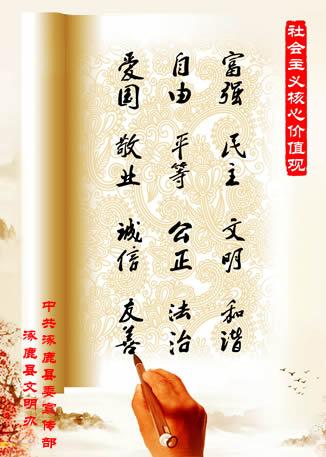 社会主义核心价值观
富强 民主 文明 和谐
自由 平等 公正 法治
爱国 敬业 诚信 友善
中共涿鹿县委宣传部
涿鹿县文明办